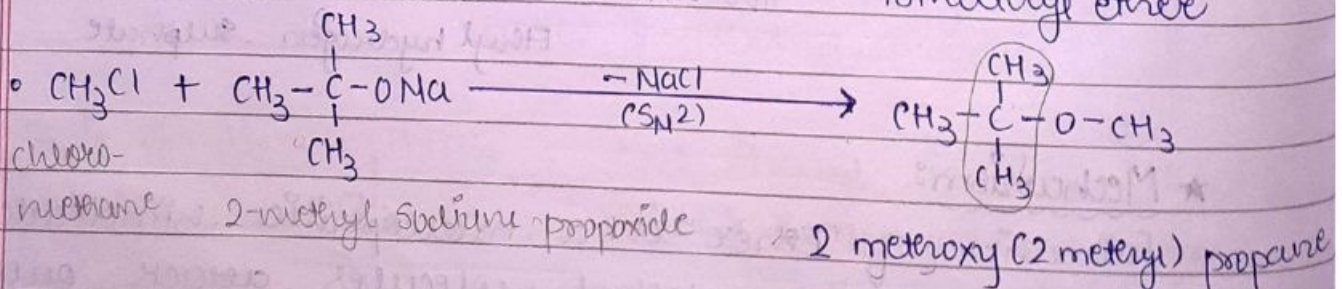 ether
CH3
• CH3Cl + CH3-C-ONa -NaCl (SN2) → CH3-C-O-CH3
CH3
CH3
CH3
chloro-
methane 2-methyl sodium propoxide
2 methoxy (2 methyl) propane